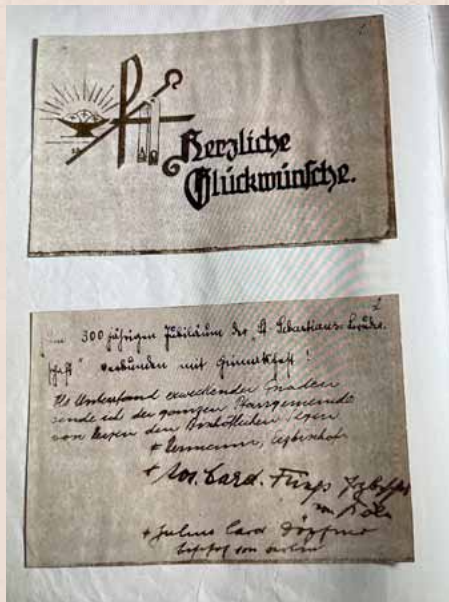 Herzliche
Glückwünsche.
300 jährigen Jubiläum der "St. Sebastians-Bruder-
schaft" verbunden mit
Als Unterpfand erweckender Gnaden
sende ich der ganzen Pfarrgemeinde
von Herzen den Bischöflichen Segen
+ Hermann,
+ Jos. Card. Frings Erzbischof
von Köln
+ Julius Card Döpfner
Bischof von Berlin